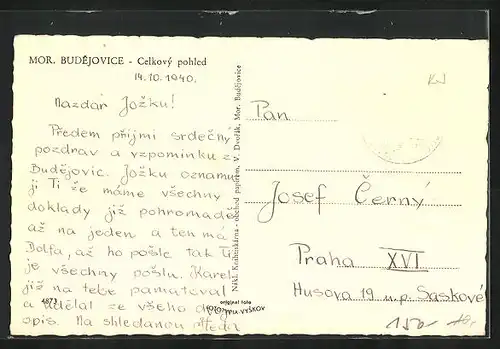 MOR. BUDĚJOVICE - Celkový pohled
14.10.1940.
Nazdar Jožku!
Předem přijmi srdečný
pozdrav a vzpomínku z
Budějovic. Jožku oznamu
ji Ti že máme všechny
doklady již pohromadě
až na jeden a ten má
Dolfa, až ho pošle tak Ti
je všechny pošlu. Karel
již na tebe pamatoval
a udělal ze všeho
opis. Na shledanou
4873
original foto
FOTOTYPIA-VYŠKOV
Nákl. Knihtiskárna - obchod papírem, V. Dvořák, Mor. Budějovice
Pan
Josef Černý
Praha XVI
Husova 19 u p. Saskové
150-